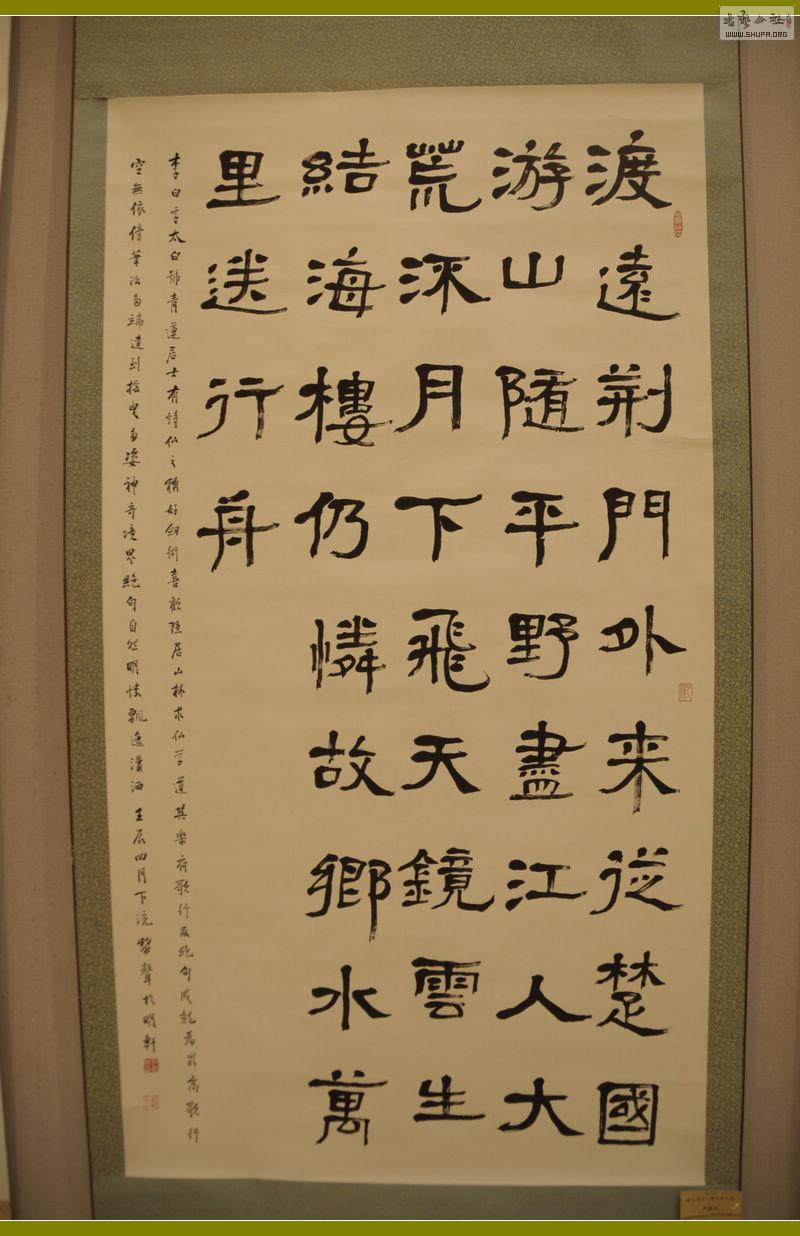 渡遠荆門外来從楚國
游山隨平野盡江入大
荒流月下飛天鏡雲生
結海樓仍憐故鄉水萬
里送行舟
李白字太白號青蓮居士有詩仙之稱好劍術喜歡隱居山林求仙学道其樂府歌行及絕句成就為最高歌行
空無依傍筆法多端達到搖曳多姿神奇境界絕句自然明快飄逸瀟洒壬辰四月下浣黎聲於明軒
書藝公社
WWW.SHUFA.ORG